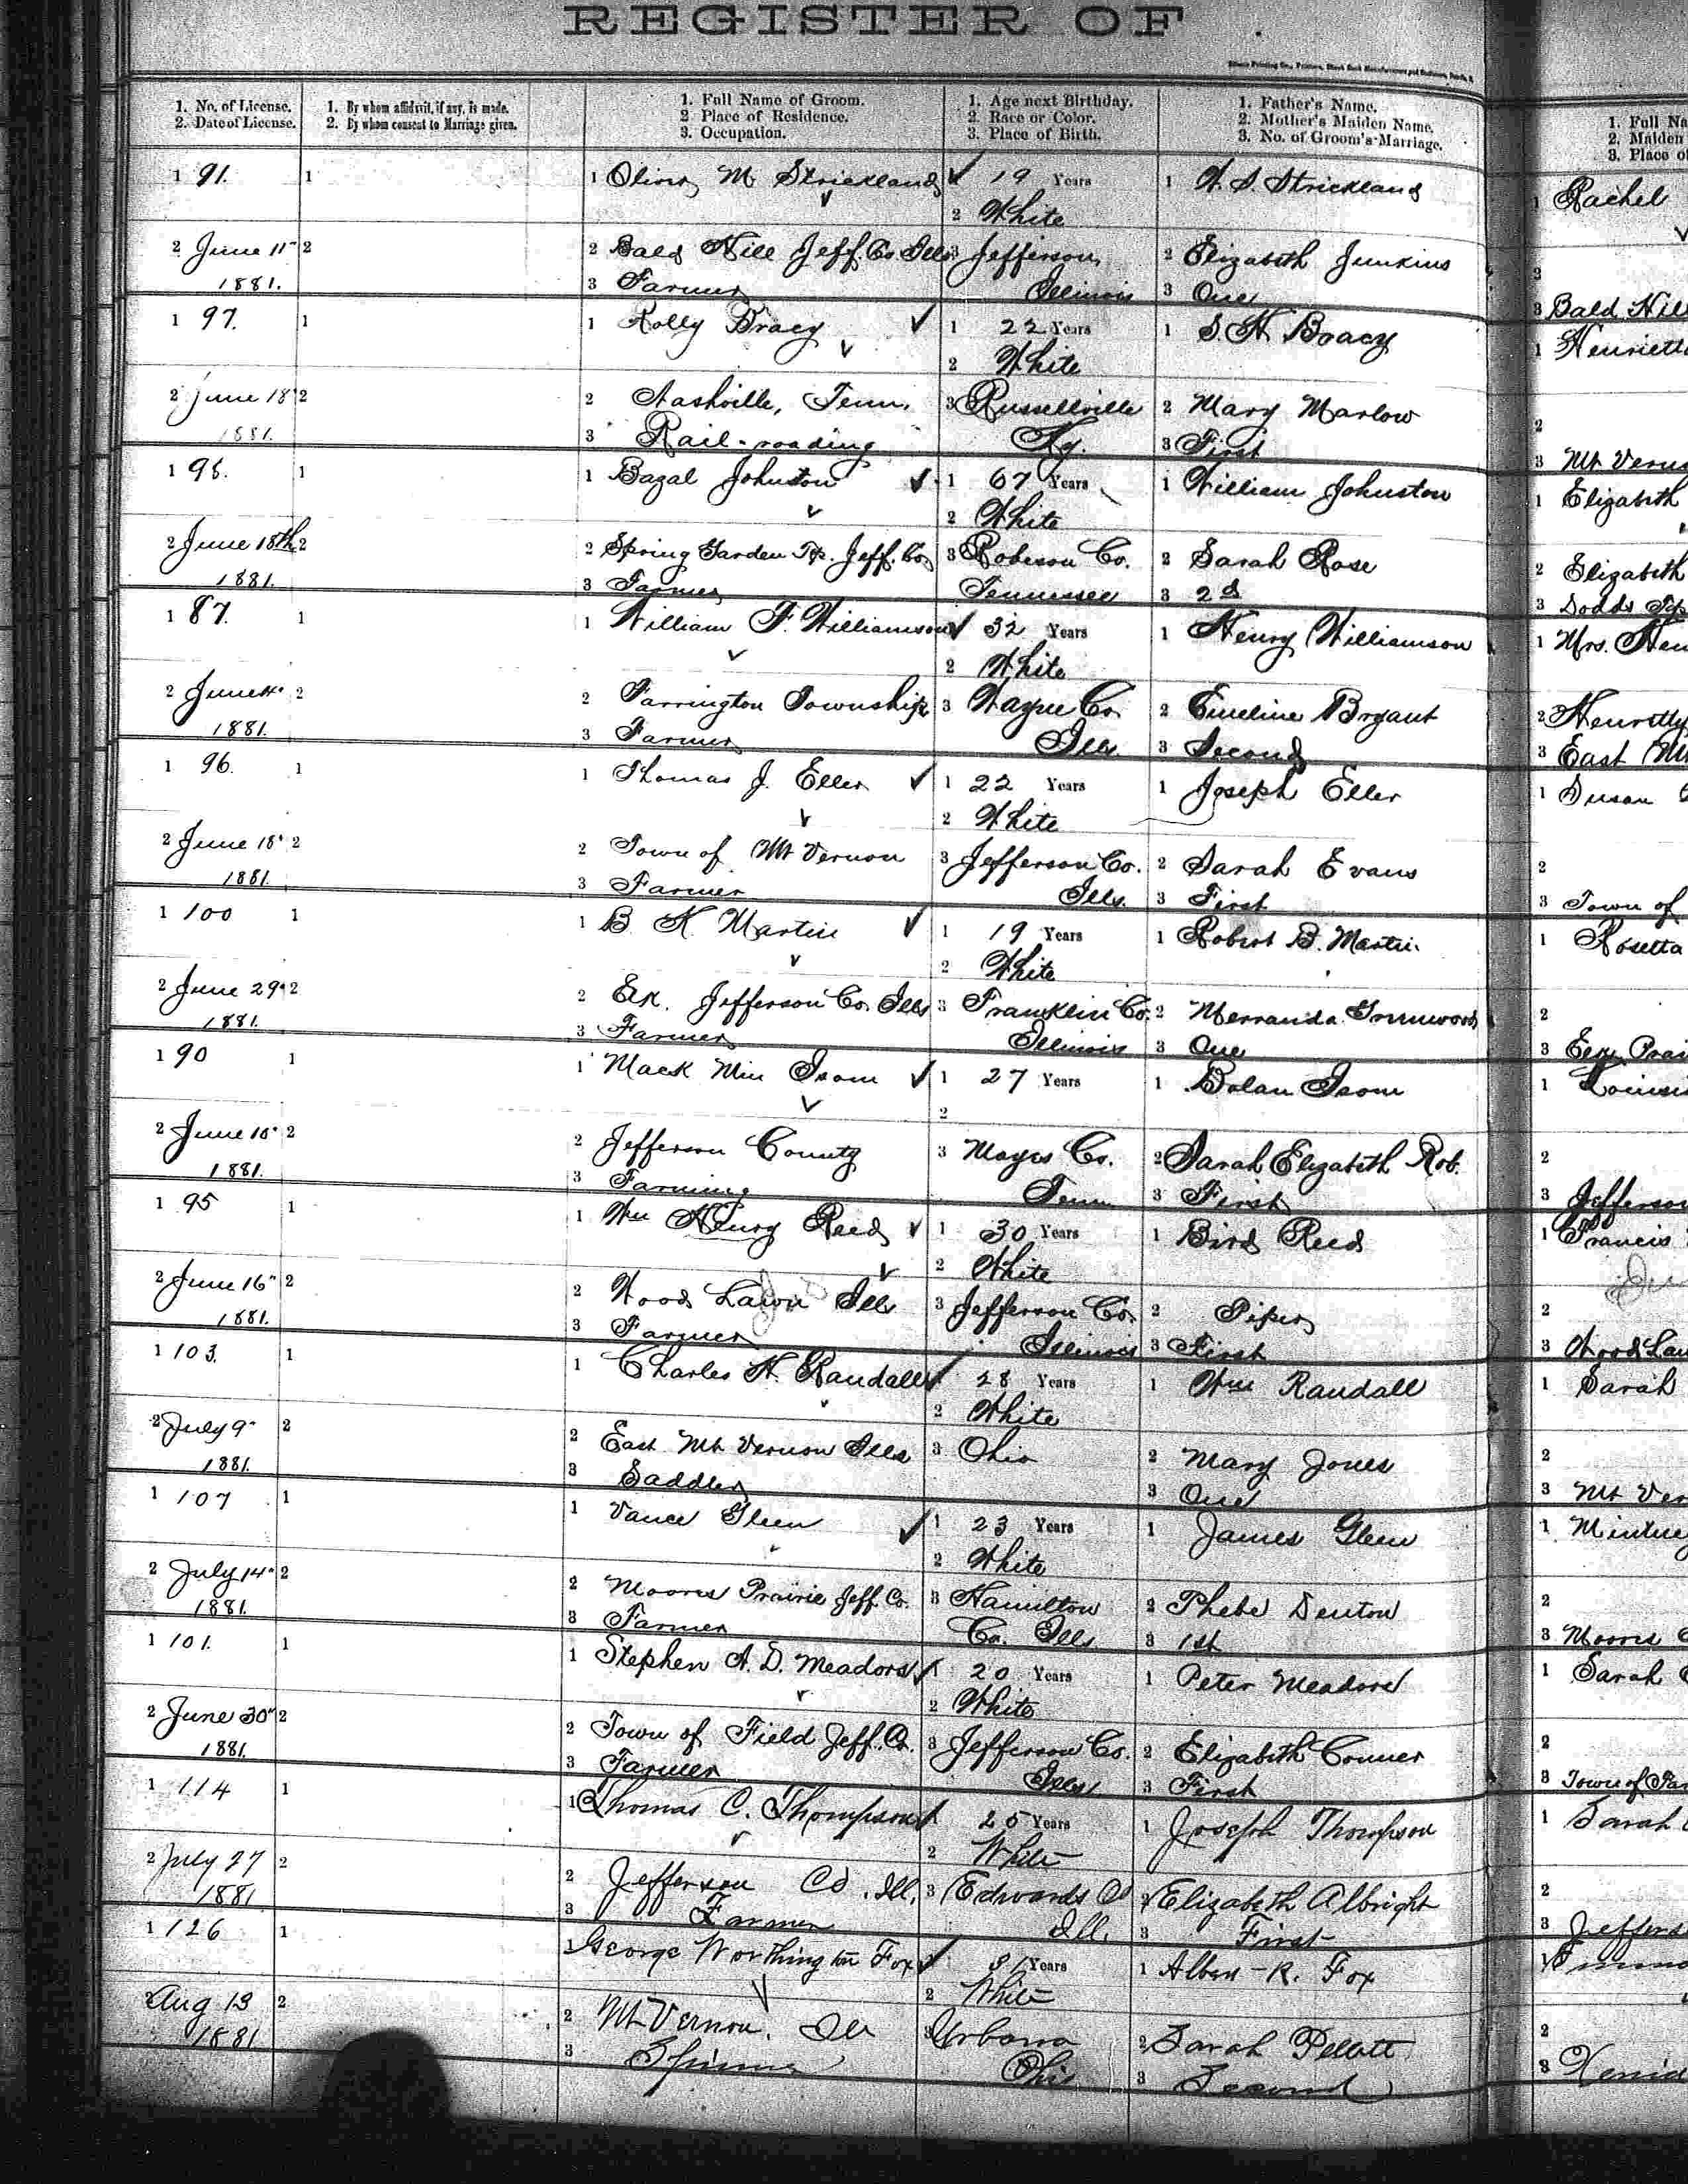 REGISTER OF
1. No. of License. 1. By whom affidavit, if any, is made. 1. Full Name of Groom. 1. Age next Birthday. 1. Father's Name. 1. Full Na
2. Date of License. 2. By whom consent to Marriage given. 2 Place of Residence. 2. Race or Color. 2. Mother's Maiden Name. 2. Maiden
3. Occupation. 3. Place of Birth. 3. No. of Groom's Marriage. 3. Place of
1 91. 1 1 Oliver M Strickland 19 Years 1 W. S. Strickland 1 Rachel
2 White
2 June 11" 2 2 Bald Hill Jeff. Co. Ills 3 Jefferson 2 Elizabeth Junkins 2
1881. 3 Farmer Illinois 3 One 3 Bald Hill
1 97. 1 1 Rolly Bracy 1 22 Years 1 S. H. Bracy 1 Henrietta
2 White
2 June 18" 2 2 Nashville, Tenn. 3 Russellville 2 Mary Marlow 2
1881. 3 Rail-roading Ky. 3 First 3 Mt Vern
1 98. 1 1 Bazal Johnston 1 67 Years 1 William Johnston 1 Elizabeth
2 White
2 June 18th 2 2 Spring Garden Tp. Jeff. Co. 3 Robeson Co. 2 Sarah Rose 2 Elizabeth
1881. 3 Farmer Tennessee 3 2d 3 Dodds Tp
1 87. 1 1 William F. Williamson 32 Years 1 Henry Williamson 1 Mrs. Hen
2 White
2 June 4" 2 2 Farrington Township 3 Wayne Co. 2 Emeline Bryant 2
1881. 3 Farmer Ills. 3 Second 3 East Mt
1 96. 1 1 Thomas J. Eller 1 22 Years 1 Joseph Eller 1 Susan
2 White
2 June 18" 2 2 Town of Mt Vernon 3 Jefferson Co. 2 Sarah Evans 2
1881. 3 Farmer Ills. 3 First 3 Town of
1 100 1 1 B. K. Martin 1 19 Years 1 Robert B. Martin 1 Rosetta
2 White
2 June 29" 2 2 Elk. Jefferson Co. Ills 3 Franklin Co. 2 2
1881. 3 Farmer Illinois 3 One 3 Elk Prai
1 90 1 1 Mack Min Isom 1 27 Years 1 Bolan Isom 1
2
2 2 2 Jefferson County 3 Mayes Co. 2 Sarah Elizabeth Rob. 2
1881. 3 Farming Tenn 3 First 3 Jefferson
1 95 1 1 Wm Henry Reed 1 30 Years 1 Bird Reed 1 Francis
2 White
2 June 16" 2 2 Wood Lawn Ills 3 Jefferson Co. 2 Piper 2
1881. 3 Farmer Illinois 3 First 3 Wood Law
1 103. 1 1 Charles H. Randall 28 Years 1 Wm Randall 1 Sarah
2 White
2 July 9" 2 2 East Mt Vernon Ills 3 Ohio 2 Mary Jones 2
1881. 3 Saddler 3 One 3 Mt Ver
1 107 1 1 Vance Glenn 1 23 Years 1 James Glenn 1
2 White
2 July 14" 2 2 Moores Prairie Jeff. Co. 3 Hamilton 2 Phebe Denton 2
1881. 3 Farmer Co. Ills 3 1st 3 Moores
1 101. 1 1 Stephen A. D. Meadors 20 Years 1 Peter Meadors 1 Sarah
2 White
2 June 30" 2 2 Town of Field Jeff. Co. 3 Jefferson Co. 2 Elizabeth Conner 2
1881. 3 Farmer Ills 3 First 3 Town of Far
1 114 1 1 Thomas C. Thompson 25 Years 1 Joseph Thompson 1 Sarah
2 White
2 July 27 2 2 Jefferson Co. Ill. 3 Edwards Co 2 Elizabeth Albright 2
1881 3 Farmer Ill. 3 First 3 Jeffers
1 126 1 1 George Worthington Fox 31 Years 1 Albert R. Fox 1
2 White
2 Aug 13 2 2 Mt Vernon. Ill 3 Urbana 2 Sarah Pellett 2
1881 3 Spinner Ohio 3 Second 3 Xenia